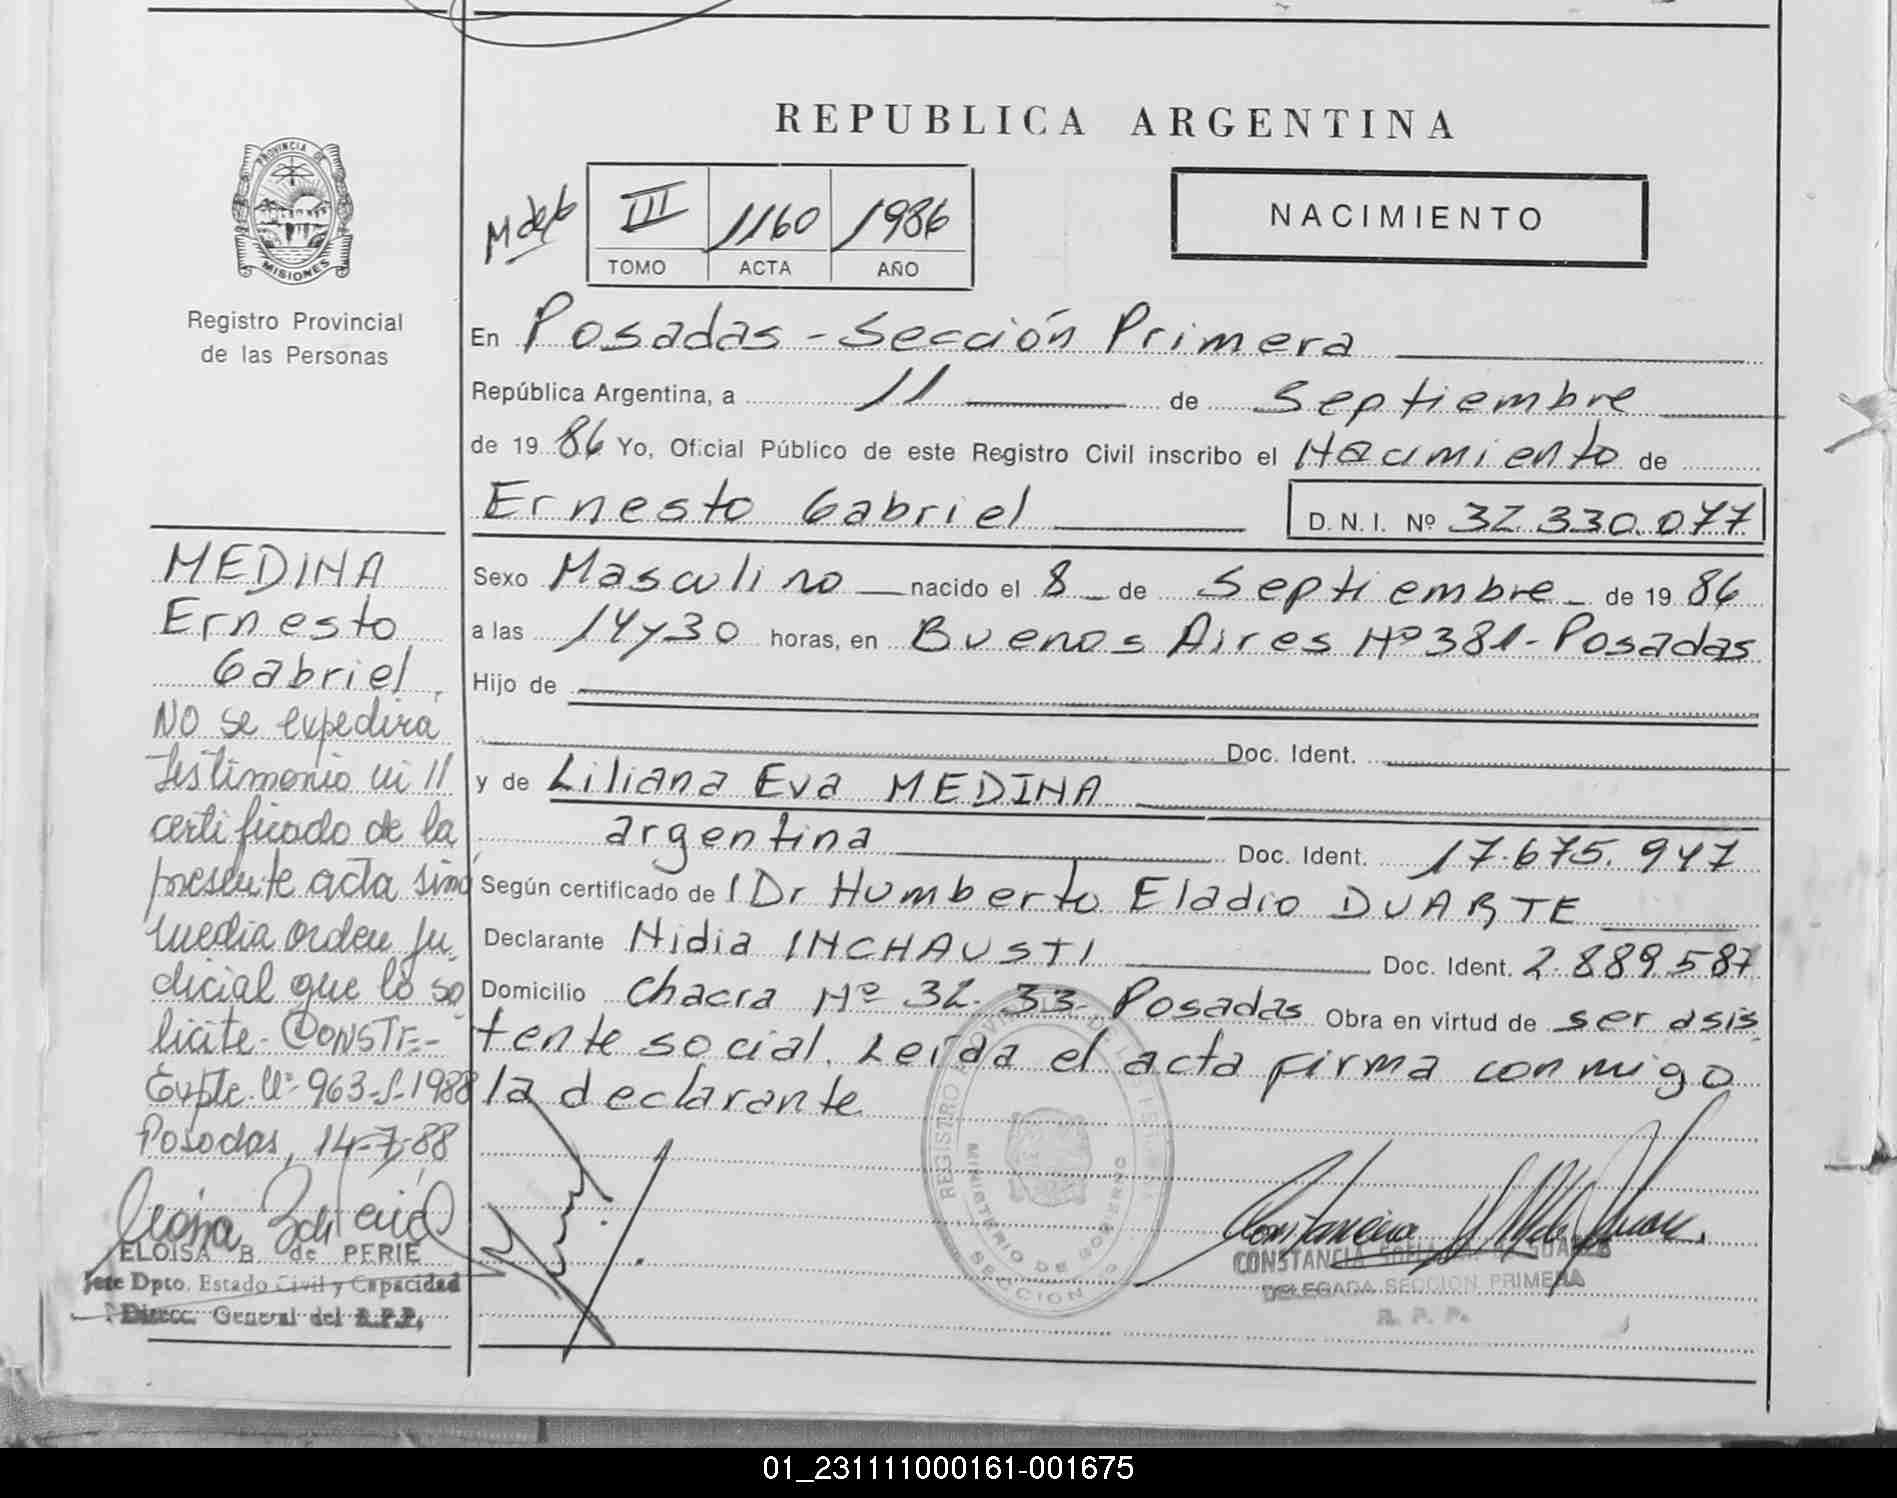 REPUBLICA ARGENTINA
PROVINCIA DE
MISIONES
Registro Provincial
de las Personas
III 1160 1986
TOMO ACTA AÑO
NACIMIENTO
En Posadas - Sección Primera
República Argentina, a 11 de Septiembre
de 1986 Yo, Oficial Público de este Registro Civil inscribo el Nacimiento de
Ernesto Gabriel D.N.I. Nº 32.330.077
Sexo Masculino nacido el 8 de Septiembre de 1986
a las 14 y 30 horas, en Buenos Aires Nº 381 - Posadas
Hijo de
Doc. Ident.
y de Liliana Eva MEDINA
argentina Doc. Ident. 17.675.947
Según certificado de l Dr Humberto Eladio DUARTE
Declarante Nidia INCHAUSTI Doc. Ident. 2.889.587
Domicilio Chacra Nº 32-33- Posadas Obra en virtud de ser asis
tente social. Leída el acta firma conmigo
la declarante
MEDINA
Ernesto
Gabriel
NO se expedirá
testimonio ni
certificado de la
presente acta sino
media orden ju-
dicial que lo so
licite - CONSTE-
Expte. Nº 963-S-1988
Posadas, 14-7-88
ELOISA B. de PERIE
Jefe Dpto. Estado Civil y Capacidad
Direcc. General del R.P.P.
REGISTRO PROVINCIAL DE LAS
MINISTERIO DE GOBIERNO
SECCION
CONSTANCIA SUAREZ
DELEGADA SECCION PRIMERA
R. P. P.
01_231111000161-001675